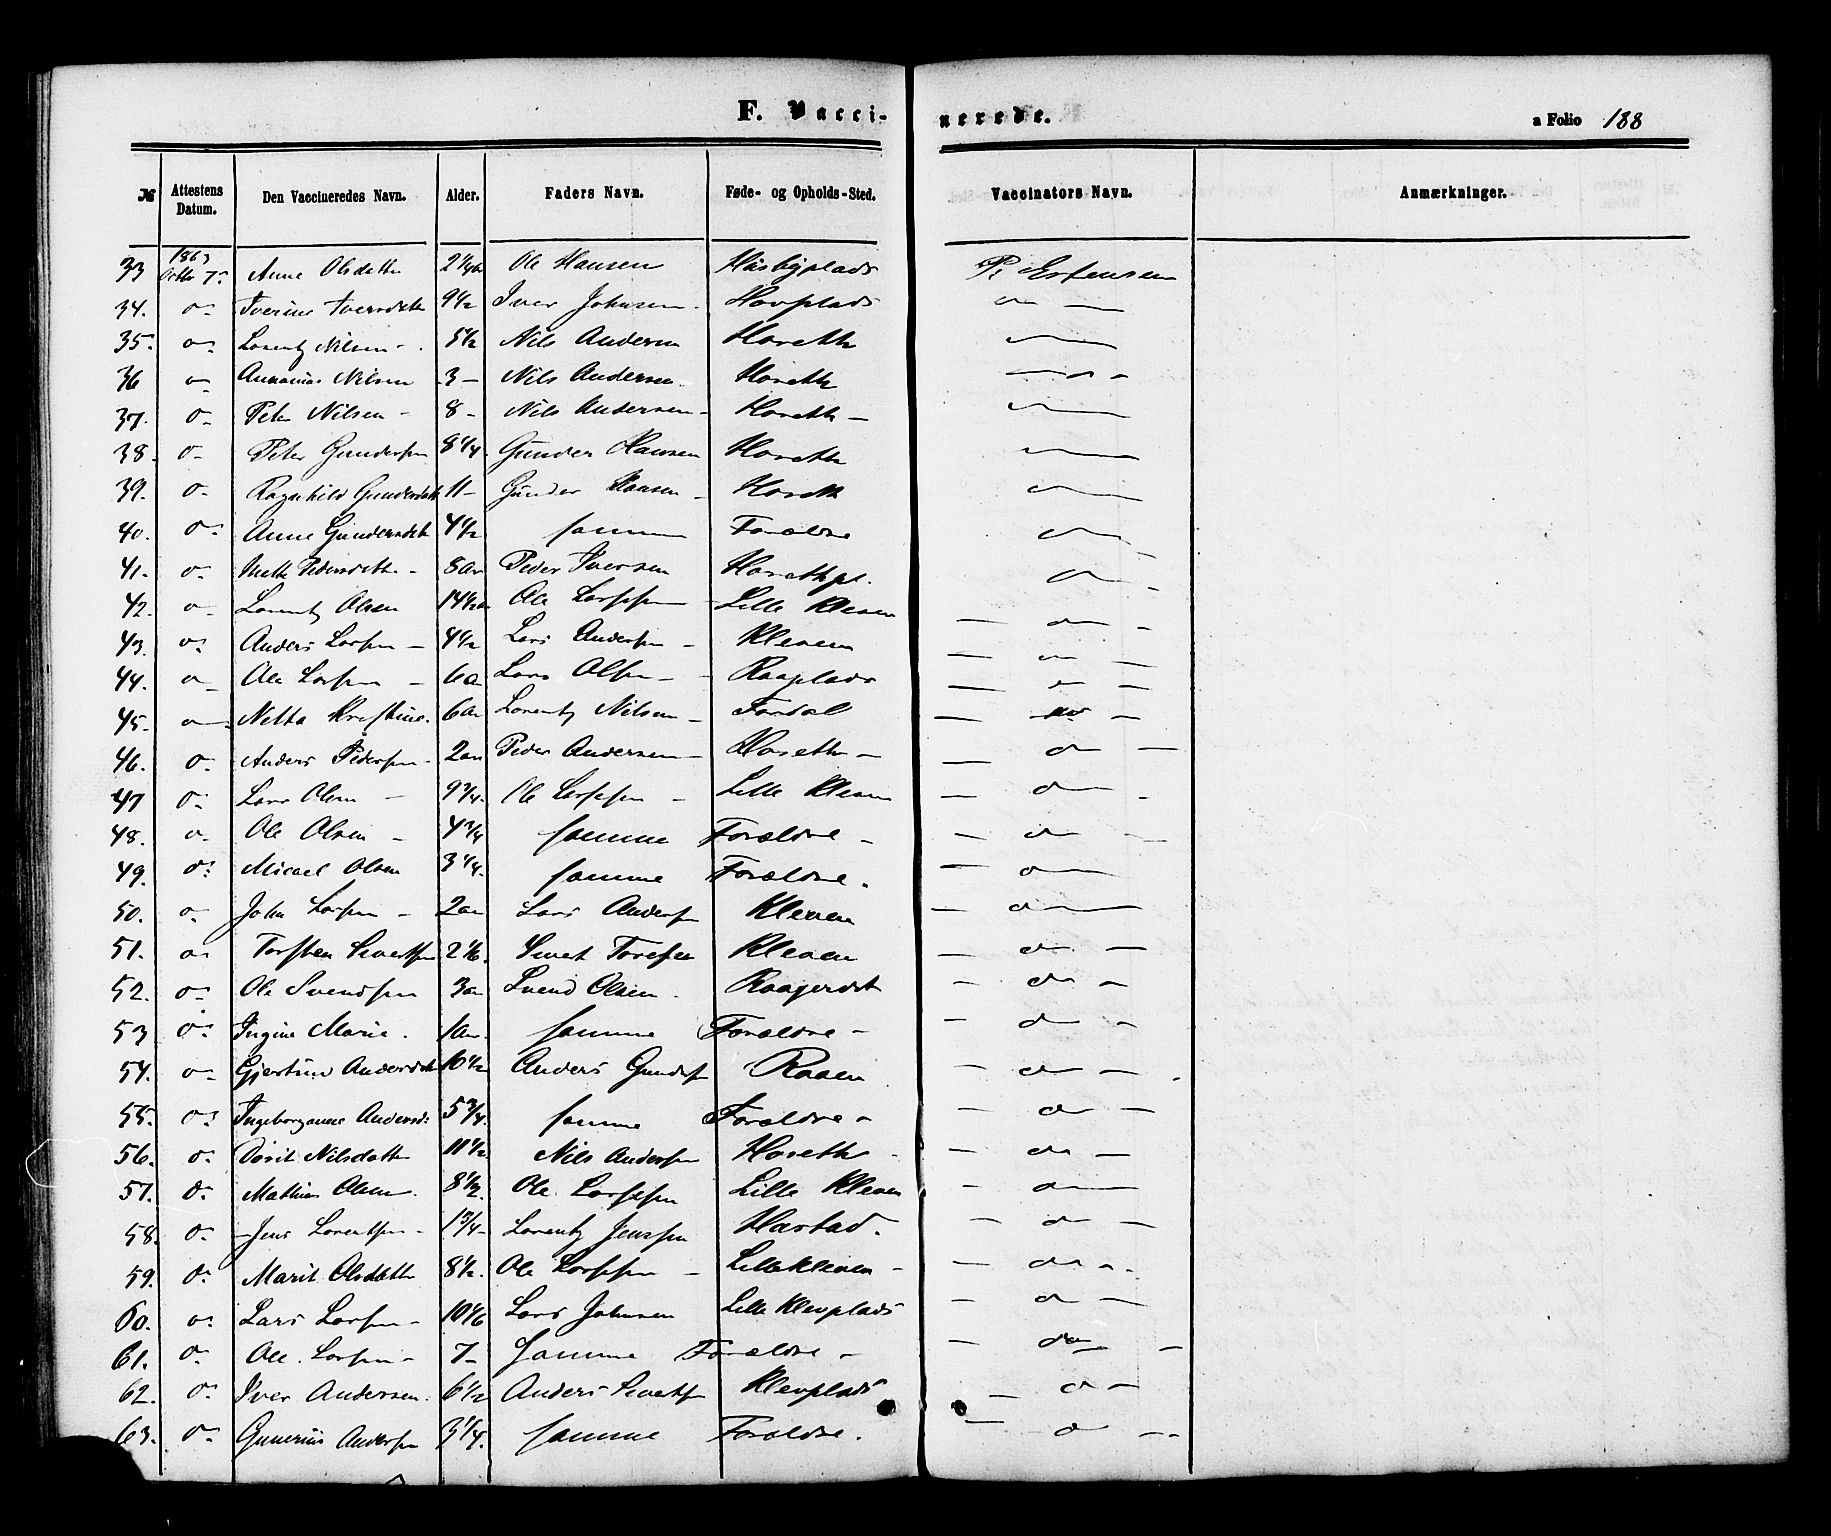 F. Vacci- nerede. a Folio 188
№ Attestens Datum. Den Vaccineredes Navn. Alder. Faders Navn. Føde- og Opholds-Sted. Vaccinators Navn. Anmærkninger.
33 1863 Octbr 7. Anne Olsdatter Ole Hansen Husbyplads P. Estensen
34. o- Iversdtr 9 1/2 Iver Johnsen - Hovplads o —
35. o- Lorentz Nilsen - 5 1/2 Nils Andersen Horeth
36 o- Nilsen 3 - Nils Andersen Horeth o -
37. o- Peter Nilsen - 8 - Nils Andersen - Horeth -
38. o- Peter Gundersen 8 1/4 Gunder Hansen Horeth
39. o- Ragnhild Gundersdatter 11 - Gunder Hansen - Horeth o
40. o- Anne Gundersdtr 4 1/2 samme Forældre o -
41. o- Mette Pedersdatter - 8 ar Peder Iversen Horethpl. o -
42. o- Lorentz Olsen 14 1/2 a Ole Larssen Lille Kleven - o -
43. o- Anders Larsen - 4 1/2 Lars Andersen - Kleven - o -
44. o- Ole Larsen - 6 a Lars Olsen - Raaplads - o -
45. o- Netta Kristine. 6 ar Lorentz Nilsen - Fordal - o -
46. o- Anders Pedersen - 2 ar Peder Andersen - Horeth - - o -
47 o- Lars Olsen - 9 3/4. Ole Larssen - Lille Kleven - o -
48. o- Ole Olsen - 4 3/4 samme Forældre - - o -
49. o- Micael Olsen 3 1/4. samme Forældre. - o
50. o- John Larsen - 2 ar Lars Andersen Kleven - o —
51. o- Torsten Sivertsen 2 1/6. Sivert Toresen Kleven - o -
52. o- Ole Svendsen 3 a Svend Olsen. - o -
53 o- Ingine Marie. 1 ar. samme Forældre - - o -
54. o- Andersdtr 10 1/2 Anders Gundersen Raaen - o -
55. o- Ingeborganne Andersd: 5 3/4. samme Forældre - - o -
56. o- Dorit Nilsdatter 11 1/2 Nils Andersen Horeth - - o -
57. o- Mathias Olsen. 8 1/2. Ole Larssen Lille Kleven - o —
58. o- Jens Lorentsen - 1 3/4 - Lorentz Jenssen Hastad. - o -
59. o- Marit Olsdatter 8 1/2. Ole Larssen - Lillekleven - - o -
60. o- Lars Larsen - 10 1/6 Lars Johnsen Lille Klevplads - o -
61. o- Ole Larsen - 7 - Samme Forældre - - do -
62. o- Iver Andersen. 6 1/2 Anders Sivertsen Klevplads - o -
63. o- Gunerius Andersen 3 1/4. samme Forældre. - o -